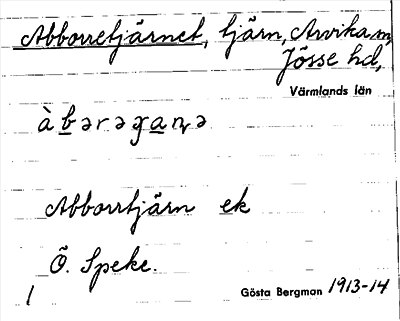 Abborretjärnet, tjärn, Arvika
Jösse hd,
Värmlands län
Abborrtjärn ek
Ö. Speke.
1 Gösta Bergman 1913-14